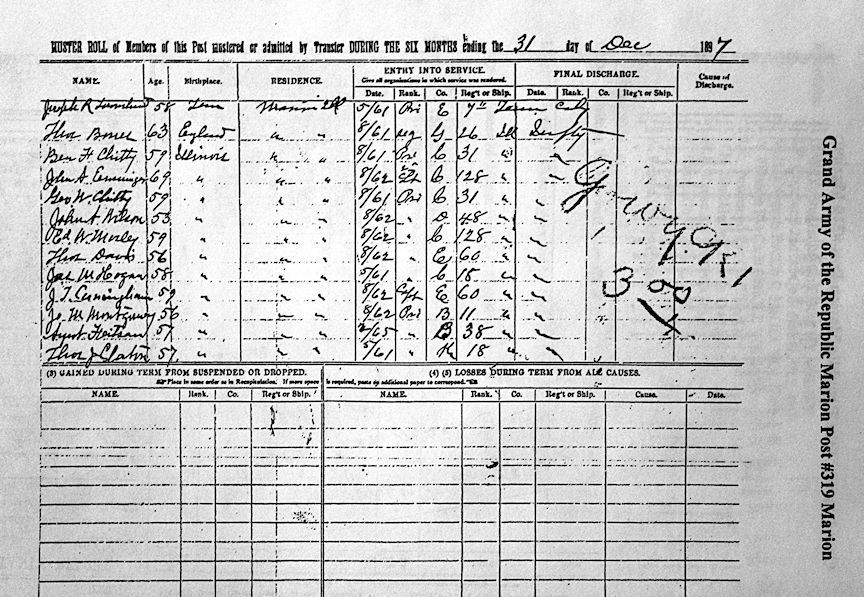 MUSTER ROLL of Members of this Post mustered or admitted by Transfer DURING THE SIX MONTHS ending the 31 day of Dec 1897
NAME. Age. Birthplace. RESIDENCE. ENTRY INTO SERVICE. FINAL DISCHARGE. Cause of Discharge.
Give all organizations in which service was rendered.
Date. Rank. Co. Reg't or Ship. Date. Rank. Co. Reg't or Ship.
Joseph R 58 Tenn Marion Ill 5/61 Pri E 7" Cav
63 England " " 8/61 G 26 Ill
Ben F Chitty 59 Illinois " " 8/61 Pri C 31 "
John A. 69 " " " 8/62 C 128 "
Geo W. Chitty 59 " " " 8/61 Pri C 31 "
John A. Wilson 53 " " " 8/62 " D 48 "
Ed W. Morley 59 " " " 8/62 " C 128 "
Thos Davis 56 " " " 8/62 " E 60 "
Jas M Hogan 58 " " " 5/61 " C 18 "
J. T. Cunningham 59 " " " 8/62 Capt E 60 "
Jo M Montgomery 56 " " " 8/62 Pri B 11 "
57 " " " /65 " B 38 "
Thos J Claton 57 " " " 5/61 " K 18 "
(3) GAINED DURING TERM FROM SUSPENDED OR DROPPED. (4) (5) LOSSES DURING TERM FROM ALL CAUSES.
Place in same order as in Recapitulation. If more space is required, paste by additional paper to correspond.
NAME. Rank. Co. Reg't or Ship. NAME. Rank. Co. Reg't or Ship. Cause. Date.
Grand Army of the Republic Marion Post #319 Marion